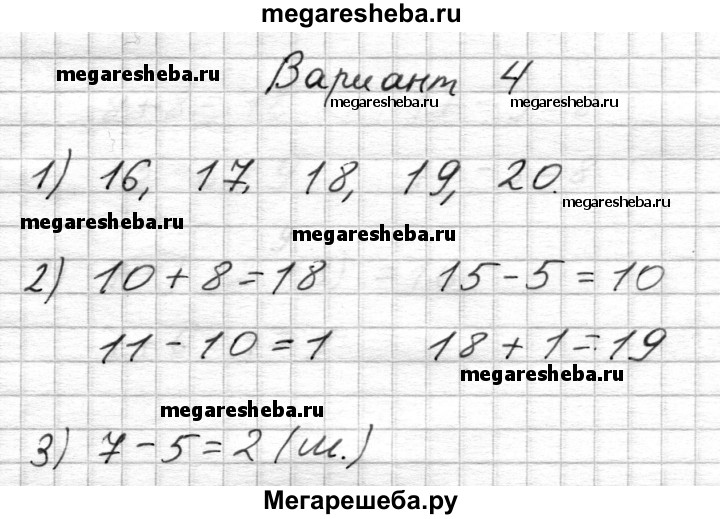 megaresheba.ru
megaresheba.ru Вариант 4
megaresheba.ru megaresheba.ru
1) 16, 17, 18, 19, 20.
megaresheba.ru megaresheba.ru megaresheba.ru
2) 10 + 8 = 18 15 - 5 = 10
11 - 10 = 1 18 + 1 = 19
megaresheba.ru
megaresheba.ru
3) 7 - 5 = 2 (м.)
Мегарешеба.ру